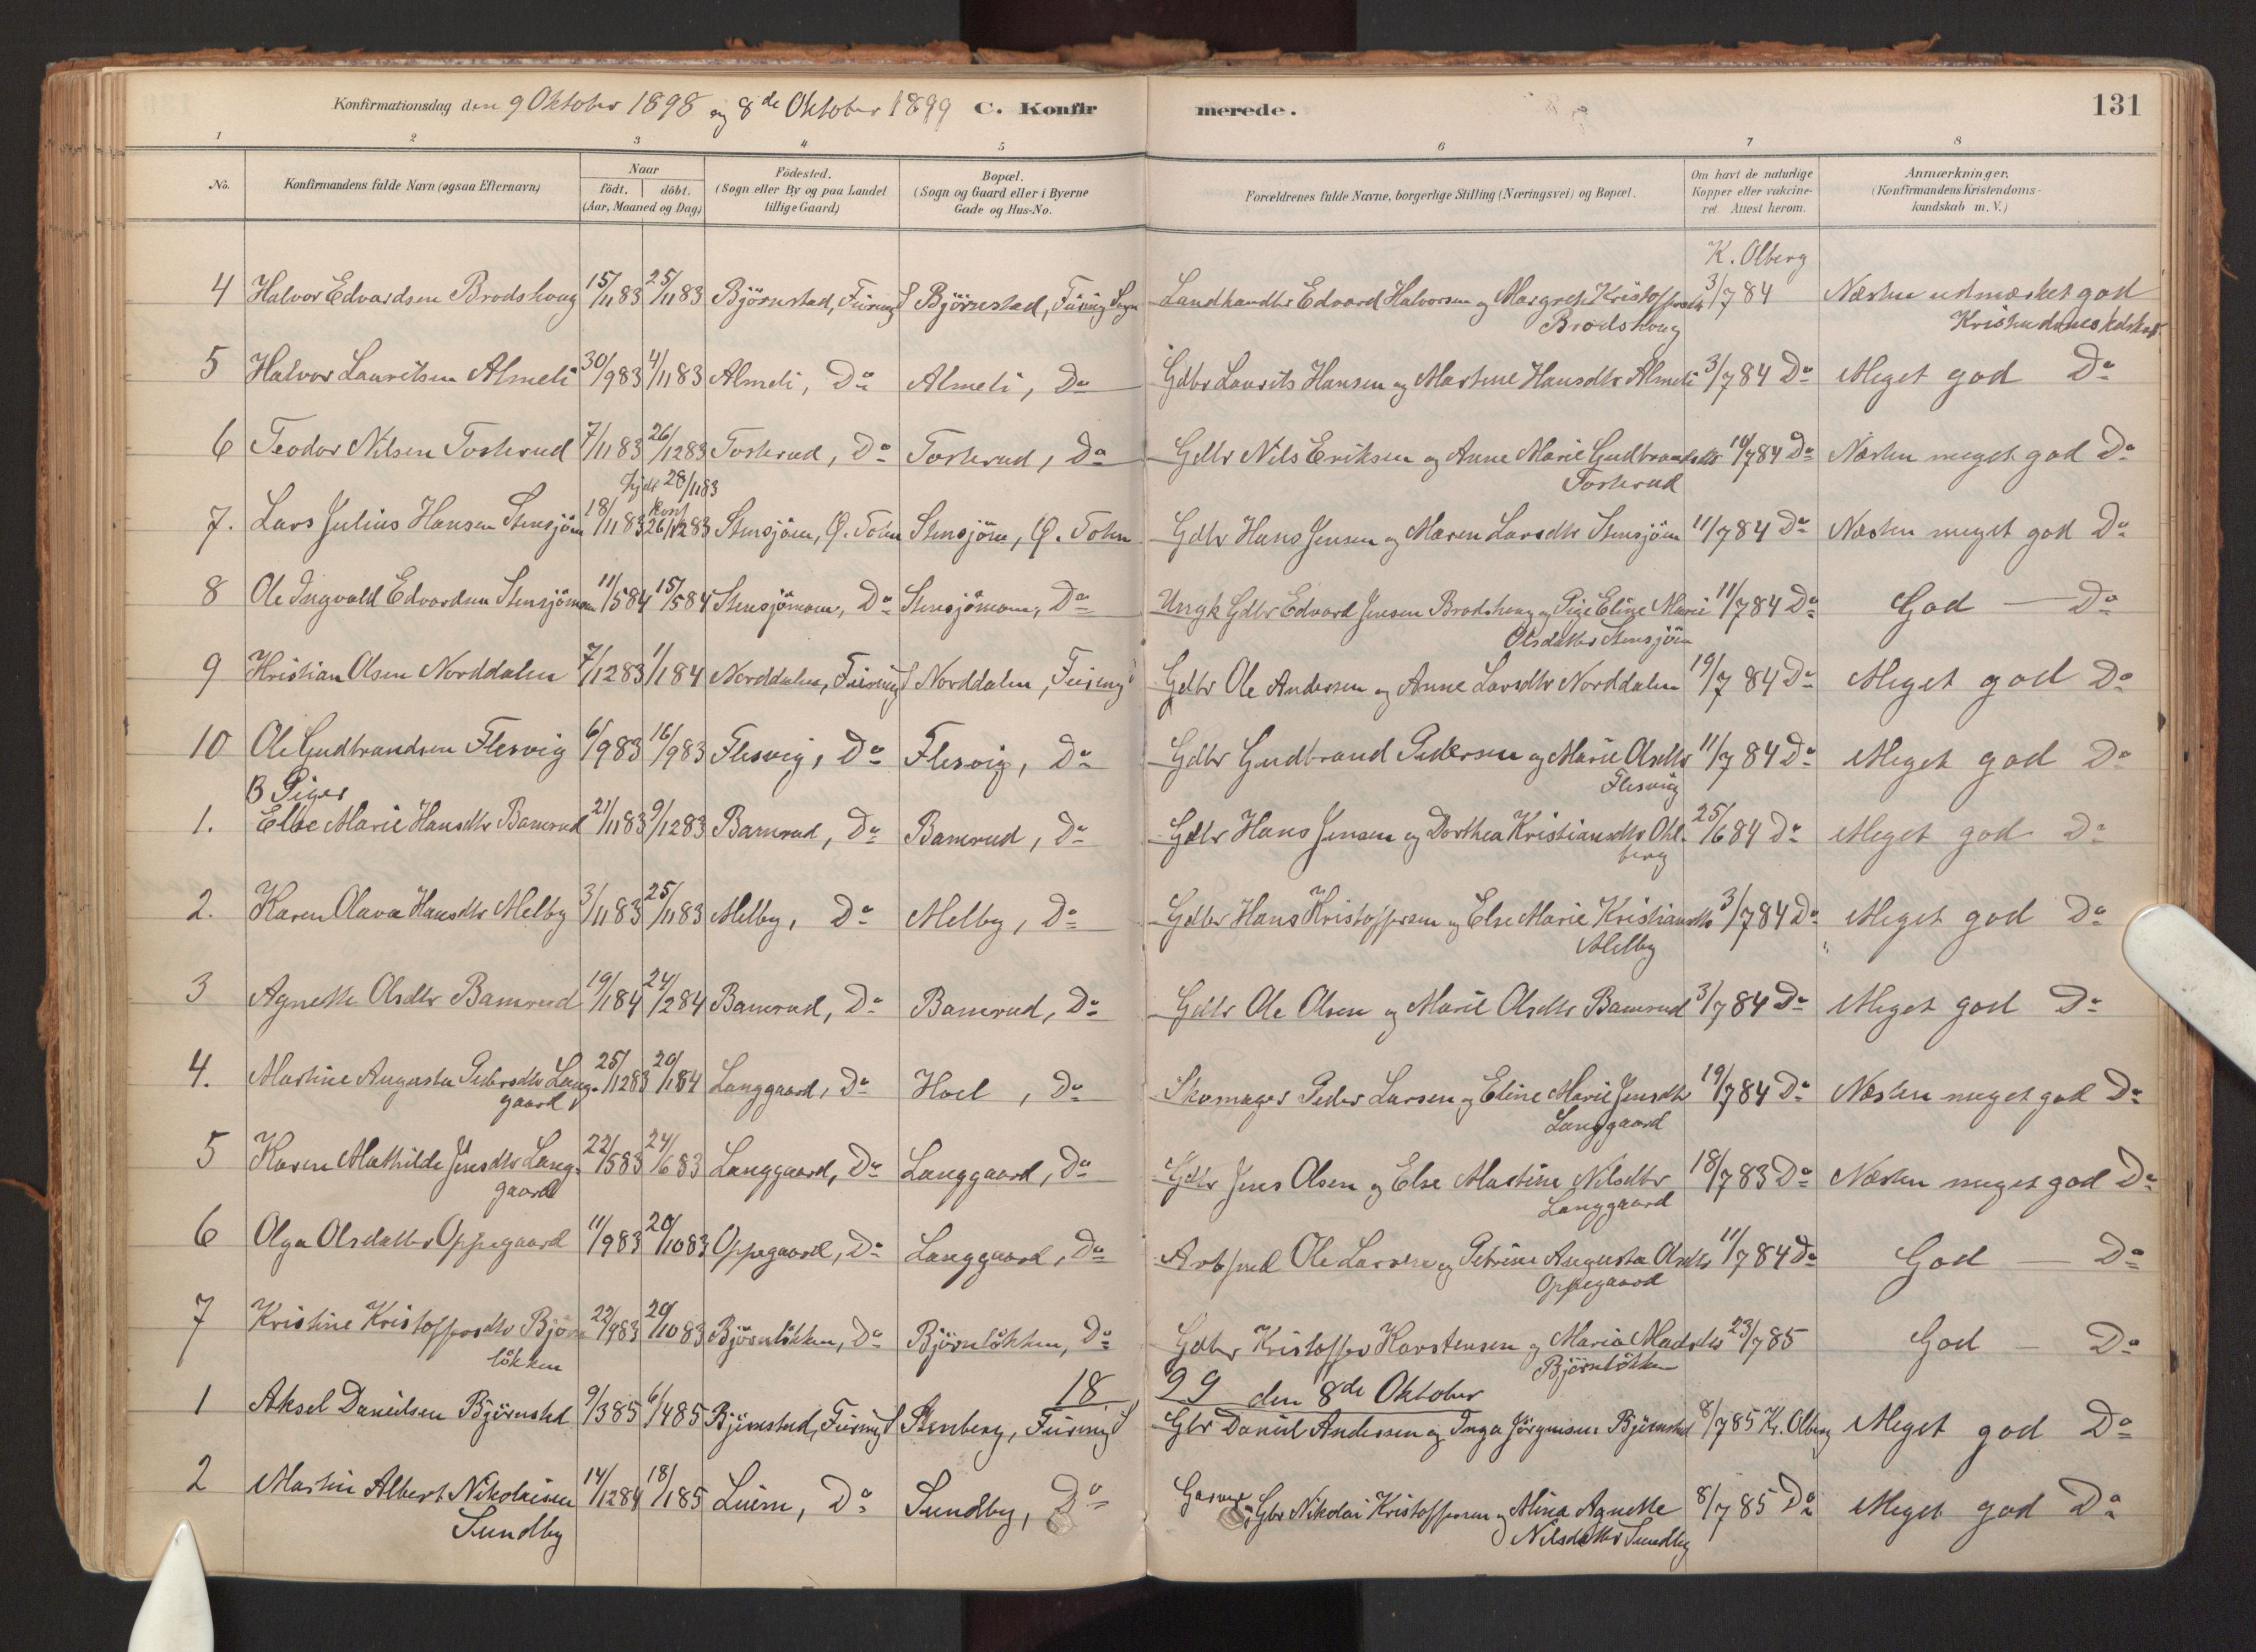 Konfirmationsdag den 9 Oktober 1898 og 8de Oktober 1899 C. Konfirmerede. 131
1 2 3 4 5 6 7 8
No. Konfirmandens fulde Navn (ogsaa Efternavn) Naar födt. döbt. (Aar, Maaned og Dag) Födested. (Sogn eller By og paa Landet tillige Gaard) Bopæl. (Sogn og Gaard eller i Byerne Gade og Hus-No. Forældrenes fulde Navne, borgerlige Stilling (Næringsvei) og Bopæl. Om havt de naturlige Kopper eller vakcineret. Attest herom. Anmærkninger. (Konfirmandens Kristendomskundskab m. V.)
K. Olberg
4 Halvor Edvardsen Brodshoug 15/11 83 25/11 83 Björnstad, Furing S Björnstad, Furing Sogn Landhandler Edvard Halvorsen og Margrete Kristoffersdtr 3/7 84 Næsten udmærket god
Brodshoug Kristendomskdskab
5 Halvor Lauritsen Almeli 30/9 83 4/11 83 Almeli, Do Almeli, Do Gdbr Laurits Hansen og Martine Hansdtr Almeli 3/7 84 Do Meget god Do
6 Teodor Nilsen Tosterud 7/11 83 26/12 83 Tosterud, Do Tosterud, Do Gdbr Nils Eriksen og Anne Marie Gudbrandsdtr 10/7 84 Do Næsten meget god Do
Tosterud
hjdt 28/11 83
7. Lars Julius Hansen Stensjöen 18/11 83 Konf 26/12 83 Stensjöen, Ø. Toten Stensjöen, Ø. Toten Gdbr Hans Jensen og Maren Larsdtr Stensjöen 11/7 84 Do Næsten meget god Do
8 Ole Ingvald Edvardsen Stensjömoen 11/5 84 15/5 84 Stensjömoen, Do Stensjömoen, Do Ungk Gdbr Edvard Jensen Brodshoug og Pige Eline Marie 11/7 84 Do God — Do
Olsdatter Stensjöen
9 Kristian Olsen Norddalen 7/12 83 1/1 84 Norddalen, Furing S Norddalen, Furing S Gdbr Ole Andersen og Anne Larsdtr Norddalen 19/7 84 Do Meget god Do
10 Ole Gudbrandsen Flesvig 6/9 83 16/9 83 Flesvig, Do Flesvig, Do Gdbr Gudbrand Pedersen og Marie Olsdtr 11/7 84 Do Meget god Do
Flesvig
B Piger
1. Else Marie Hansdtr Bamrud 21/11 83 9/12 83 Bamrud, Do Bamrud, Do Gdbr Hans Jensen og Dorthea Kristiansdtr Ohl- 25/6 84 Do Meget god Do
berg
2. Karen Olava Hansdtr Melby 3/11 83 25/11 83 Melby, Do Melby, Do Gdbr Hans Kristoffersen og Else Marie Kristiansdtr 3/7 84 Do Meget god Do
Melby
3 Agnette Olsdtr Bamrud 19/1 84 24/2 84 Bamrud, Do Bamrud, Do Gdbr Ole Olsen og Marie Olsdtr Bamrud 3/7 84 Do Meget god Do
4. Martine Augusta Pedersdtr Lang- 25/12 83 20/1 84 Langgaard, Do Hoel, Do Skomager Peder Larsen og Eline Marie Jensdtr 19/7 84 Do Næsten meget god Do
gaard Langgaard
5 Karen Mathilde Jensdtr Lang- 22/5 83 24/6 83 Langgaard, Do Langgaard, Do Gdbr Jens Olsen og Else Martine Nilsdtr 18/7 83 Do Næsten meget god Do
gaard Langgaard
6 Olga Olsdatter Oppegaard 11/9 83 20/10 83 Oppegaard, Do Langgaard, Do Arbsmd Ole Larsen og Petrine Augusta Olsdtr 11/7 84 Do God — Do
Oppegaard
7 Kristine Kristoffersdtr Björn 22/9 83 20/10 83 Björnlökken, Do Björnlökken, Do Gdbr Kristoffer Karstensen og Maria Madsdtr 23/7 85 God — Do
lökken Björnlökken
18 99 den 8de Oktober
1 Aksel Danielsen Björnstad 9/3 85 6/4 85 Björnstad, Furing S Stenberg, Furing S Gbr Daniel Andersen og Inga Jörgensen Björnstad 8/7 85 K. Olberg Meget god Do
2 Martin Albert Nikolaisen 14/12 84 18/1 85 Luirn, Do Sundby, Do Garver Gbr Nikolai Kristoffersen og Alina Agnette 8/7 85 Do Meget god Do
Sundby Nilsdatter Sundby